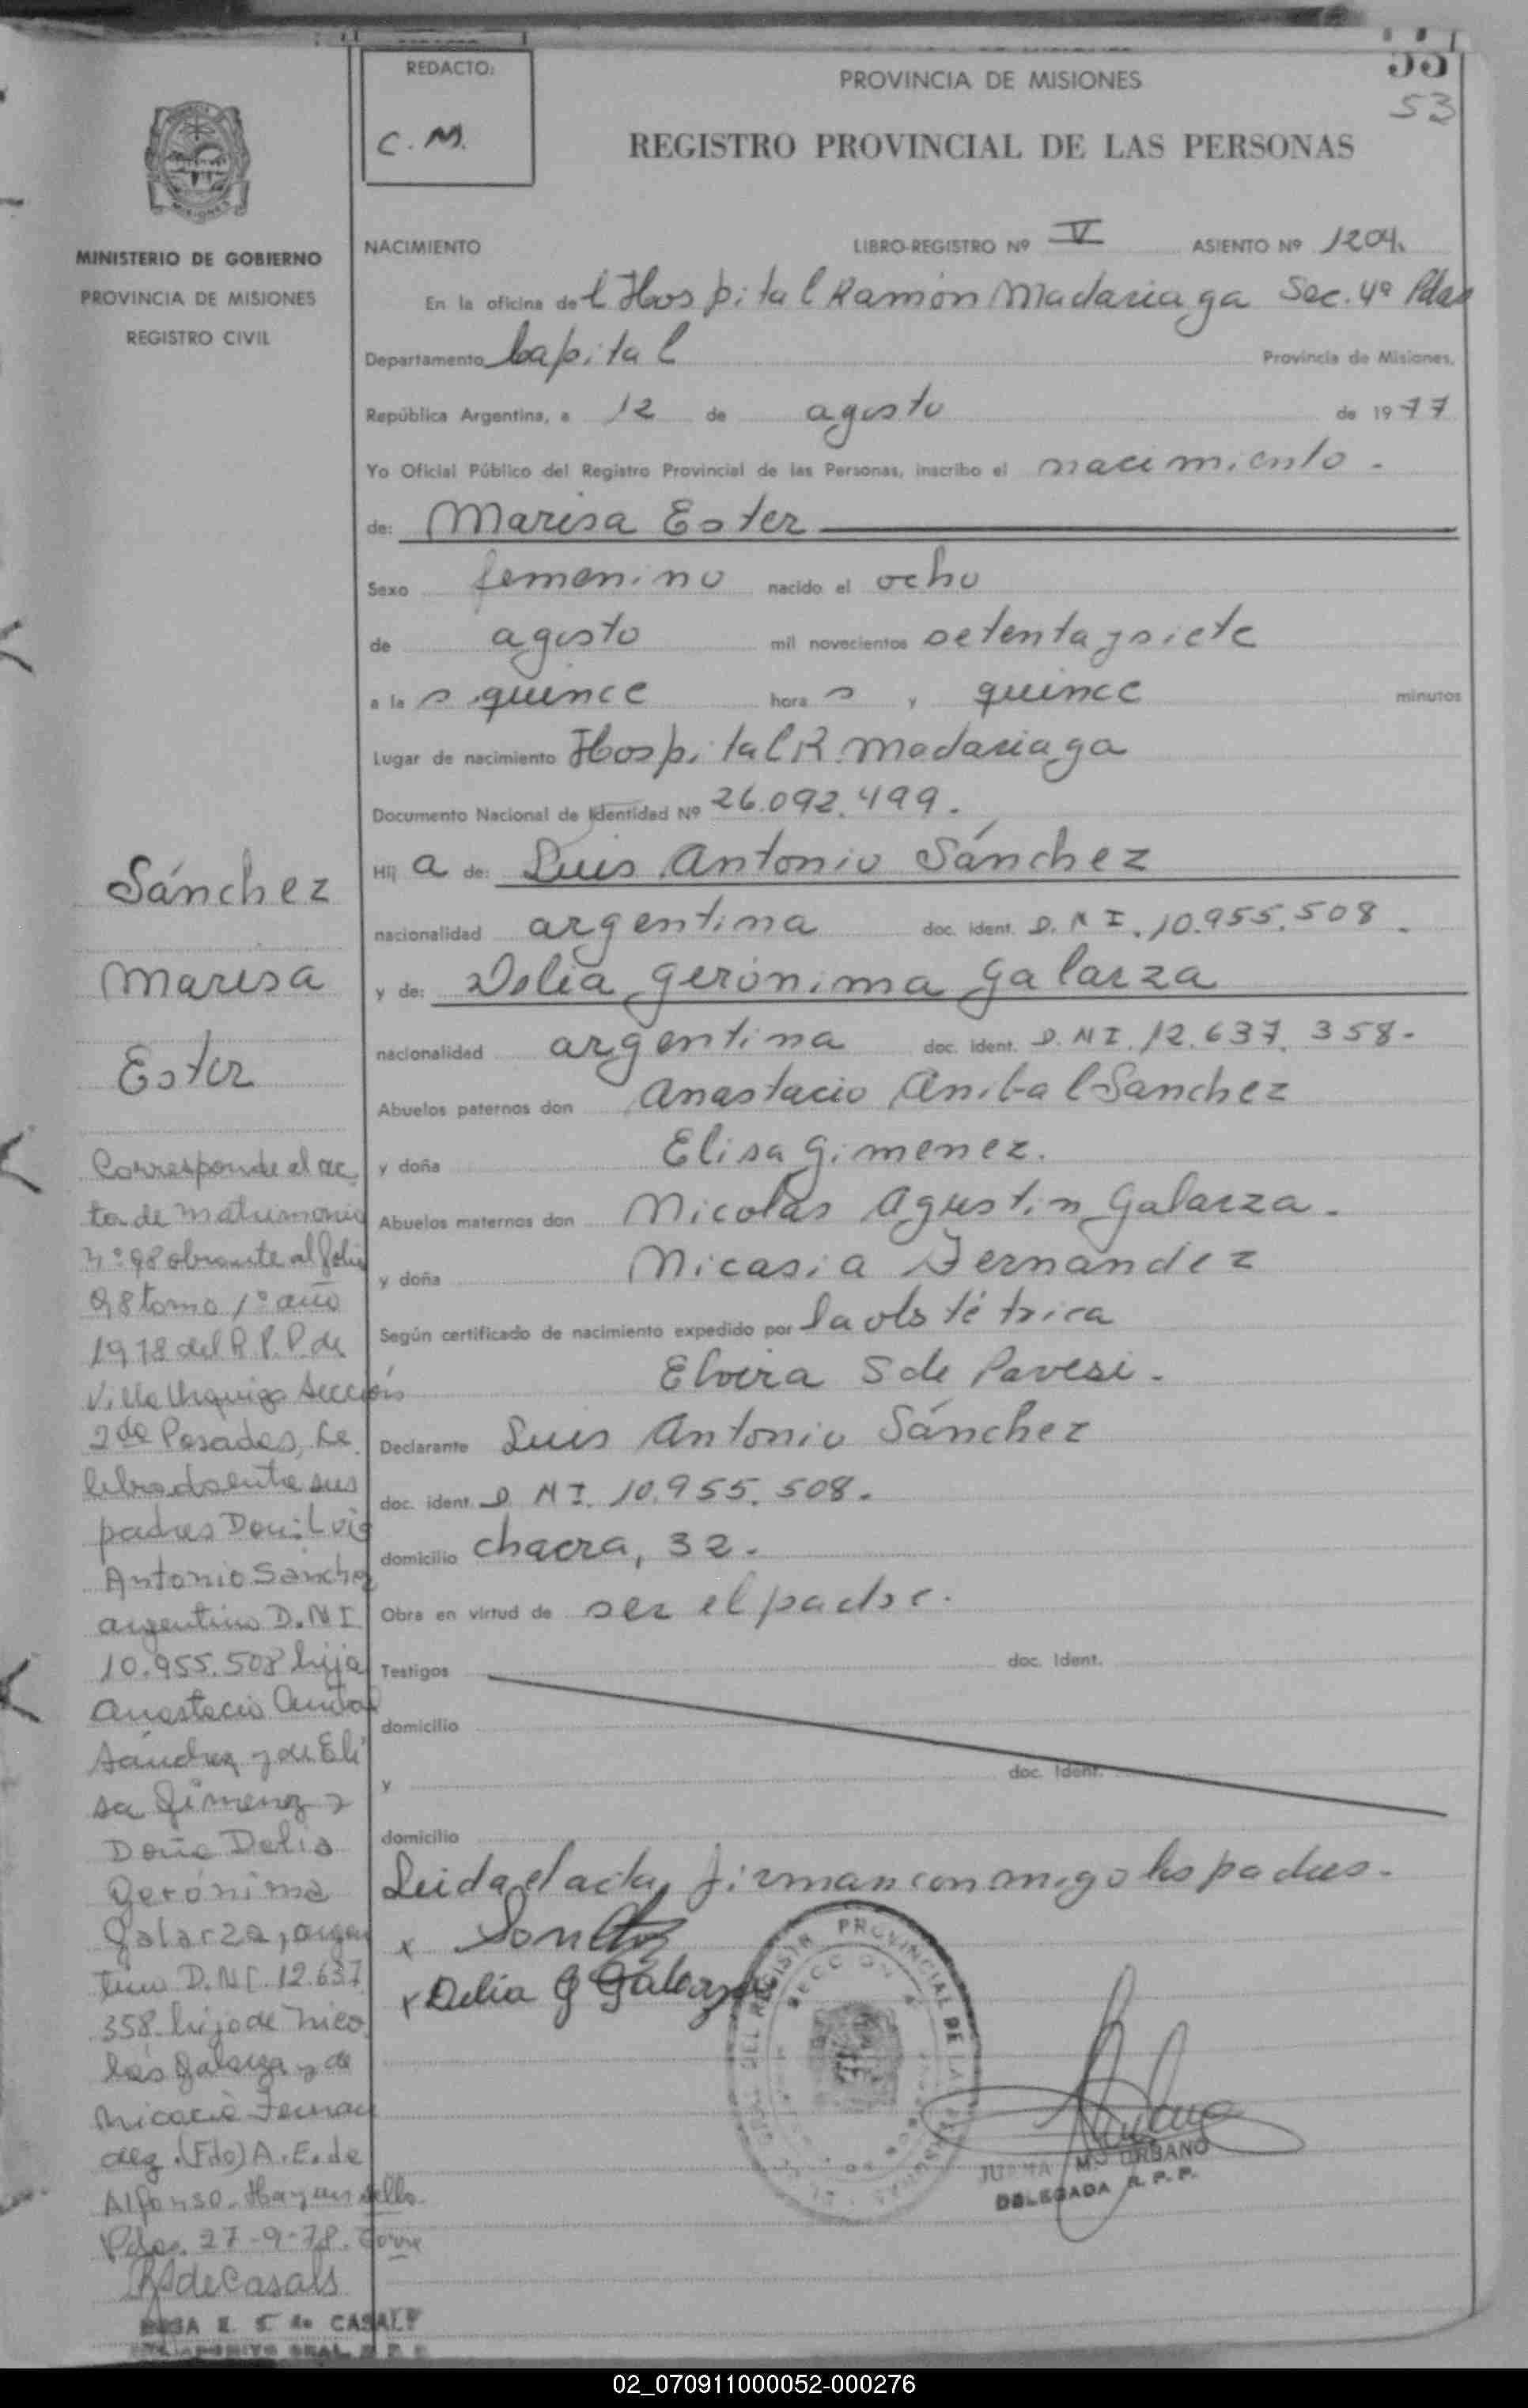 REDACTO:
C. M.
PROVINCIA DE MISIONES
53
REGISTRO PROVINCIAL DE LAS PERSONAS
MISIONES
MINISTERIO DE GOBIERNO
PROVINCIA DE MISIONES
REGISTRO CIVIL
NACIMIENTO LIBRO-REGISTRO Nº V ASIENTO Nº 1204.
En la oficina del Hospital Ramón Madariaga Sec. 4ª Pdas
Departamento Capital Provincia de Misiones.
República Argentina, a 12 de agosto de 1977
Yo Oficial Público del Registro Provincial de las Personas, inscribo el nacimiento.
de: Marisa Ester
Sexo femenino nacido el ocho
de agosto mil novecientos setenta y siete
a las quince horas y quince minutos
Lugar de nacimiento Hospital R. Madariaga
Documento Nacional de Identidad Nº 26.092.499.
Hija de: Luis Antonio Sánchez
nacionalidad argentina doc. ident. D.N.I. 10.955.508.
y de: Delia Gerónima Galarza
nacionalidad argentina doc. ident. D.N.I. 12.637.358.
Abuelos paternos don Anastacio Anibal Sanchez
y doña Elisa Gimenez.
Abuelos maternos don Nicolás Agustin Galarza.
y doña Nicasia Fernandez
Según certificado de nacimiento expedido por la obstétrica
Elvira S de Pavesi.
Declarante Luis Antonio Sánchez
doc. ident. D.N.I. 10.955.508.
domicilio chacra, 32.
Obra en virtud de ser el padre.
Testigos doc. Ident.
domicilio
y doc. Ident.
domicilio
Leida el acta, firman conmigo los padres.
x
x Delia G Galarza
JUANA M. URBANO
DELEGADA R. P. P.
Sánchez
Marisa
Ester
Corresponde al ac
ta de matrimonio
nº 98 obrante al folio
98 tomo 1º año
1978 del R.P.P. de
Villa Urquiza Sección
2da Posadas, Ce
lebrado entre sus
padres Don: Luis
Antonio Sánchez
argentino D.N.I
10.955.508 hijo
Anastacio Anibal
Sánchez y de Eli
sa Gimenez y
Doña Delia
Gerónima
Galarza, argen
tina D.N.I. 12.637
358. hija de Nico
lás Galarza y de
Nicacia Fernan
dez. (Fdo) A. E. de
Alfonso. Hay un sello.
Pdas. 27-9-78.
de Casals
E. S. de CASALS
02_070911000052-000276